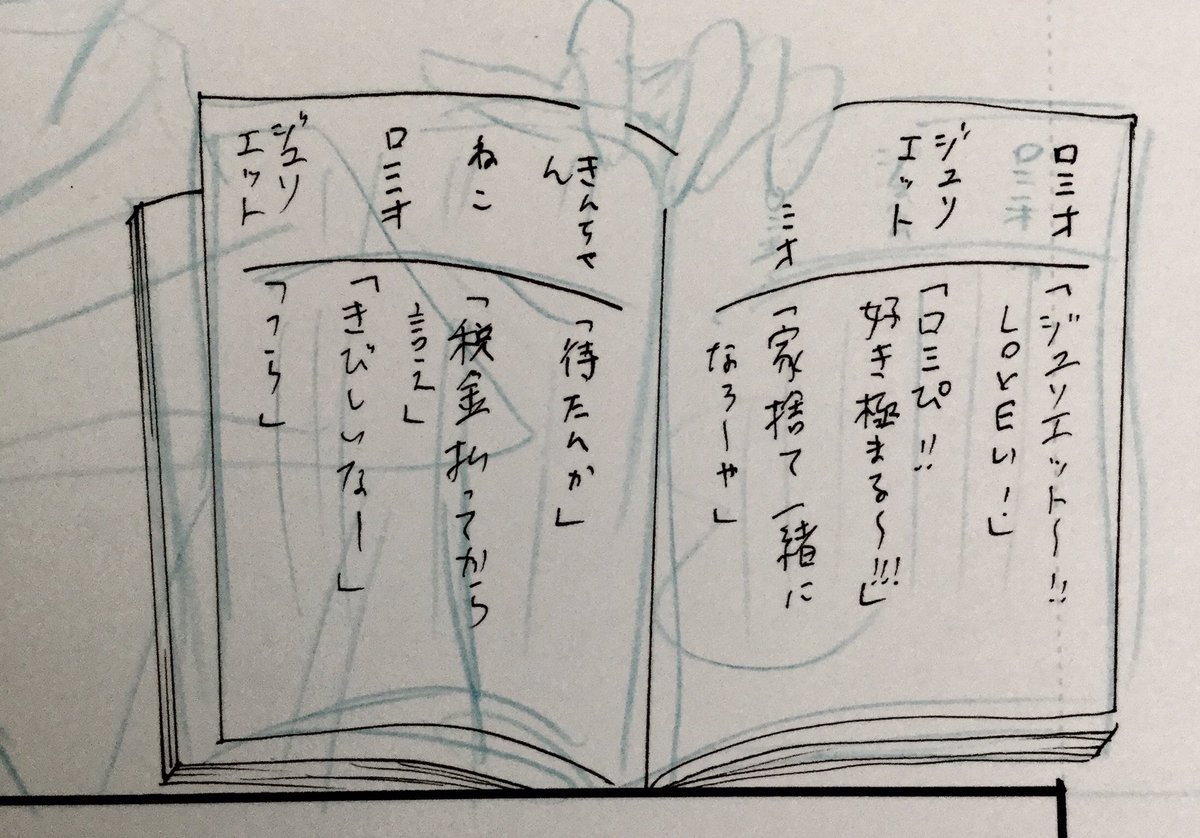 ロミオ
「ジュリエット〜!!
LOVEい!」
ジュリ
エット
「ロミぴ!!
好き極まる〜!!!」
ミオ
「家捨て一緒に
なろーや」
きんちゃ
ん
「待たんか」
ねこ
「税金払ってから
言え」
ロミオ
「きびしいなー」
ジュリ
エット
「つら」